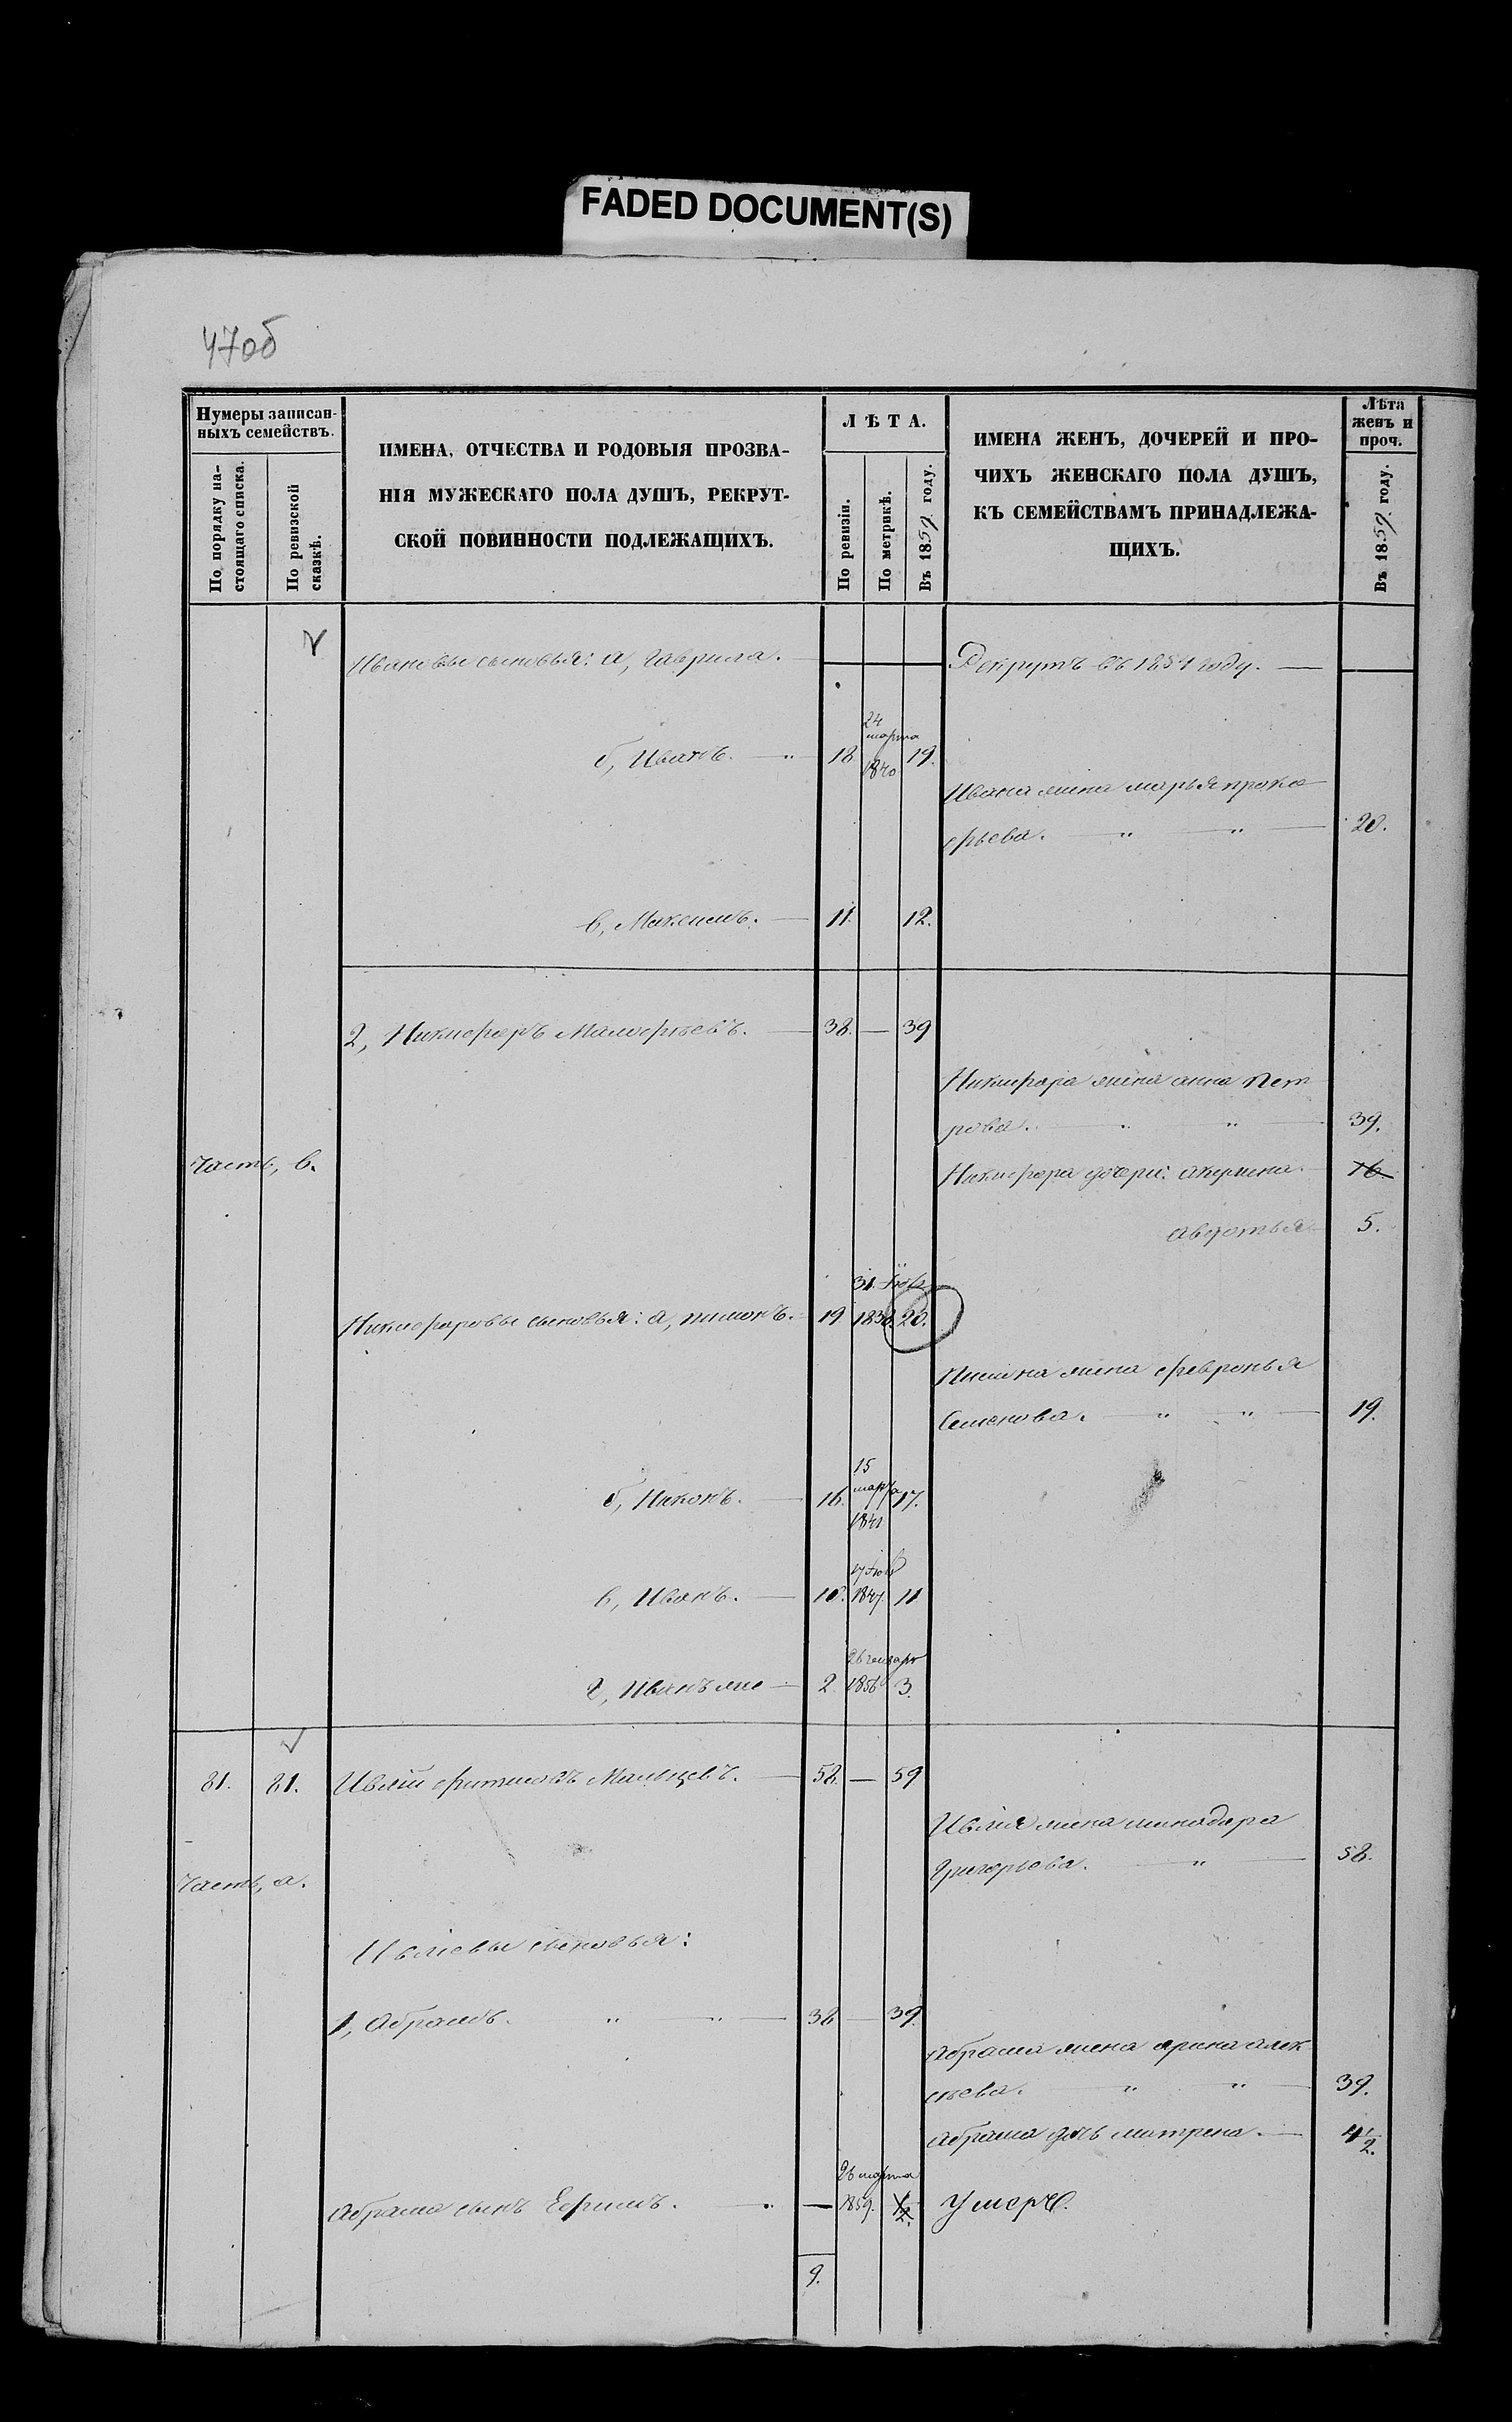 FADED DOCUMENT(S)
470б
Нумеры записан-
ныхъ семействъ.
По порядку на-
стоящаго списка.
По ревизской
сказкѣ.
ИМЕНА, ОТЧЕСТВА И РОДОВЫЯ ПРОЗВА-
НІЯ МУЖЕСКАГО ПОЛА ДУШЪ, РЕКРУТ-
СКОЙ ПОВИННОСТИ ПОДЛЕЖАЩИХЪ.
ЛѢТА.
По ревизіи.
По метрикѣ.
Въ 1859. году.
ИМЕНА ЖЕНЪ, ДОЧЕРЕЙ И ПРО-
ЧИХЪ ЖЕНСКАГО ПОЛА ДУШЪ,
КЪ СЕМЕЙСТВАМЪ ПРИНАДЛЕЖА-
ЩИХЪ.
Лѣта
женъ и
проч.
Въ 1859. году.
Ивановы сыновья: а, Гаврила. Рекрутъ въ 1854 году. —
24
марта
б, Иванъ. — " 18 1840 19.
Ивана жена марья проко
фьева. — " — " — 20.
в, Максимъ. — 11. 12.
2, Никифоръ — 38. — 39
Никифора жена анна Пет
рова. — " — " — 39.
Часть, в. Никифора дочери: акулина. 16
авдотья 5.
Никифоровы сыновья: а, пимонъ. 19 1838. 20.
Пимона жена февронья
Семенова. — " — " — 19.
15
марта
б, Никонъ. — 16. 1841 17.
в, Иванъ. — 10. 1847. 11
26 генваря
г, Иванъ же — 2. 1856 3.
81. 81. Ивлій Мальцевъ. — 58. — 59
Ивлія жена минадора
Григорьева. — " — 58.
Часть, а.
Ивліевы сыновья:
1, Абрамъ. — " — " — 38 — 39.
Абрама жена арина алек
сѣева. — " — " — 39.
Абрама дочь матрена. — 4 1/2.
26 марта
Абрама сынъ Ефимъ. — 1859. 1/2. Умеръ.
9.